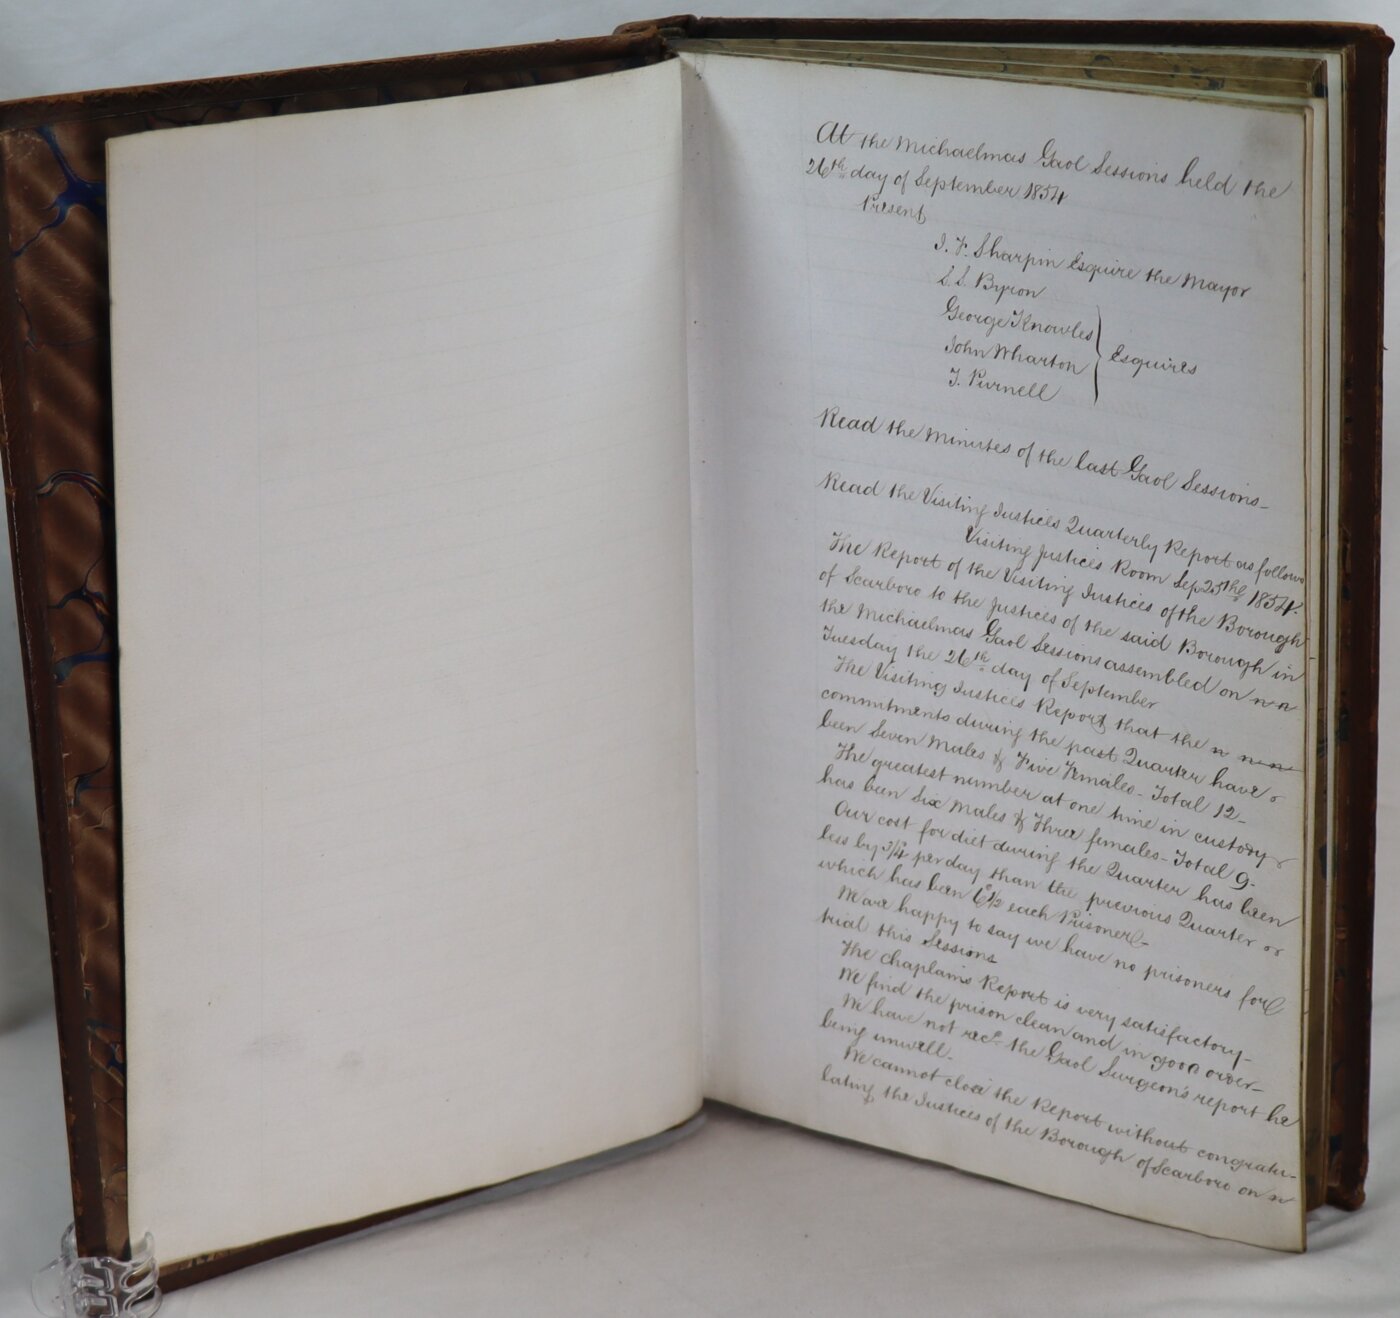 At the Michaelmas Gaol Sessions held the
26th day of September 1854
Present
J. F. Sharpin Esquire the Mayor
S. S. Byron
George Knowles
John Wharton
Esquires
J. Purnell
Read the Minutes of the last Gaol Sessions-
Read the Visiting Justices Quarterly Report as follows
Visiting Justices Room Sep 25th 1854.
The Report of the Visiting Justices of the Borough
of Scarboro to the Justices of the said Borough in
the Michaelmas Gaol Sessions assembled on
Tuesday the 26th day of September
The Visiting Justices Report that the
commitments during the past Quarter have
been Seven Males & Five Females - Total 12-
The greatest number at one time in custody
has been Six Males & Three females - Total 9-
Our cost for diet during the Quarter has been
less by 3/4 per day than the previous Quarter or
which has been 6 1/2 each Prisoner-
We are happy to say we have no prisoners for
trial this Sessions
The Chaplains Report is very satisfactory-
We find the prison clean and in good order-
We have not recd the Gaol Surgeon's report he
being unwell-
We cannot close the Report without congratu-
lating the Justices of the Borough of Scarboro on